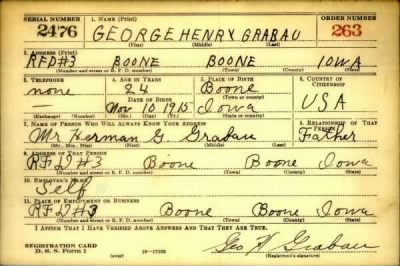 SERIAL NUMBER 1. NAME (Print) ORDER NUMBER
2476 GEORGE HENRY GRABAU 263
(First) (Middle) (Last)
2. ADDRESS (Print)
RFD#3 BOONE BOONE IOWA
(Number and street or R. F. D. number) (Town) (County) (State)
3. TELEPHONE 4. AGE IN YEARS 5. PLACE OF BIRTH 6. COUNTRY OF CITIZENSHIP
none 24 Boone
DATE OF BIRTH (Town or county)
— Nov 10 1915 Iowa USA
(Exchange) (Number) (Mo.) (Day) (Yr.) (State or country)
7. NAME OF PERSON WHO WILL ALWAYS KNOW YOUR ADDRESS 8. RELATIONSHIP OF THAT PERSON
Mr Herman G. Grabau Father
(Mr., Mrs., Miss) (First) (Middle) (Last)
9. ADDRESS OF THAT PERSON
RFD#3 Boone Boone Iowa
(Number and street or R. F. D. number) (Town) (County) (State)
10. EMPLOYER'S NAME
Self
11. PLACE OF EMPLOYMENT OR BUSINESS
RFD#3 Boone Boone Iowa
(Number and street or R. F. D. number) (Town) (County) (State)
I AFFIRM THAT I HAVE VERIFIED ABOVE ANSWERS AND THAT THEY ARE TRUE.
REGISTRATION CARD
D. S. S. Form 1 (over) Geo H Grabau
(Registrant's signature)